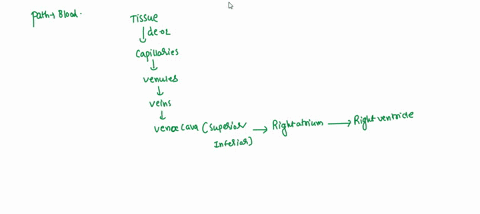 Path+ Blood.
Tissue
deoL
Capillaries
venules
veins
venae cava (superior → Right atrium → Right ventricle
Inferior)